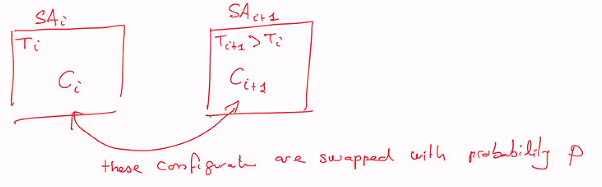 SAi
SAi+1
Ti
Ti+1 > Ti
Ci
Ci+1
these configurat are swapped with probability p